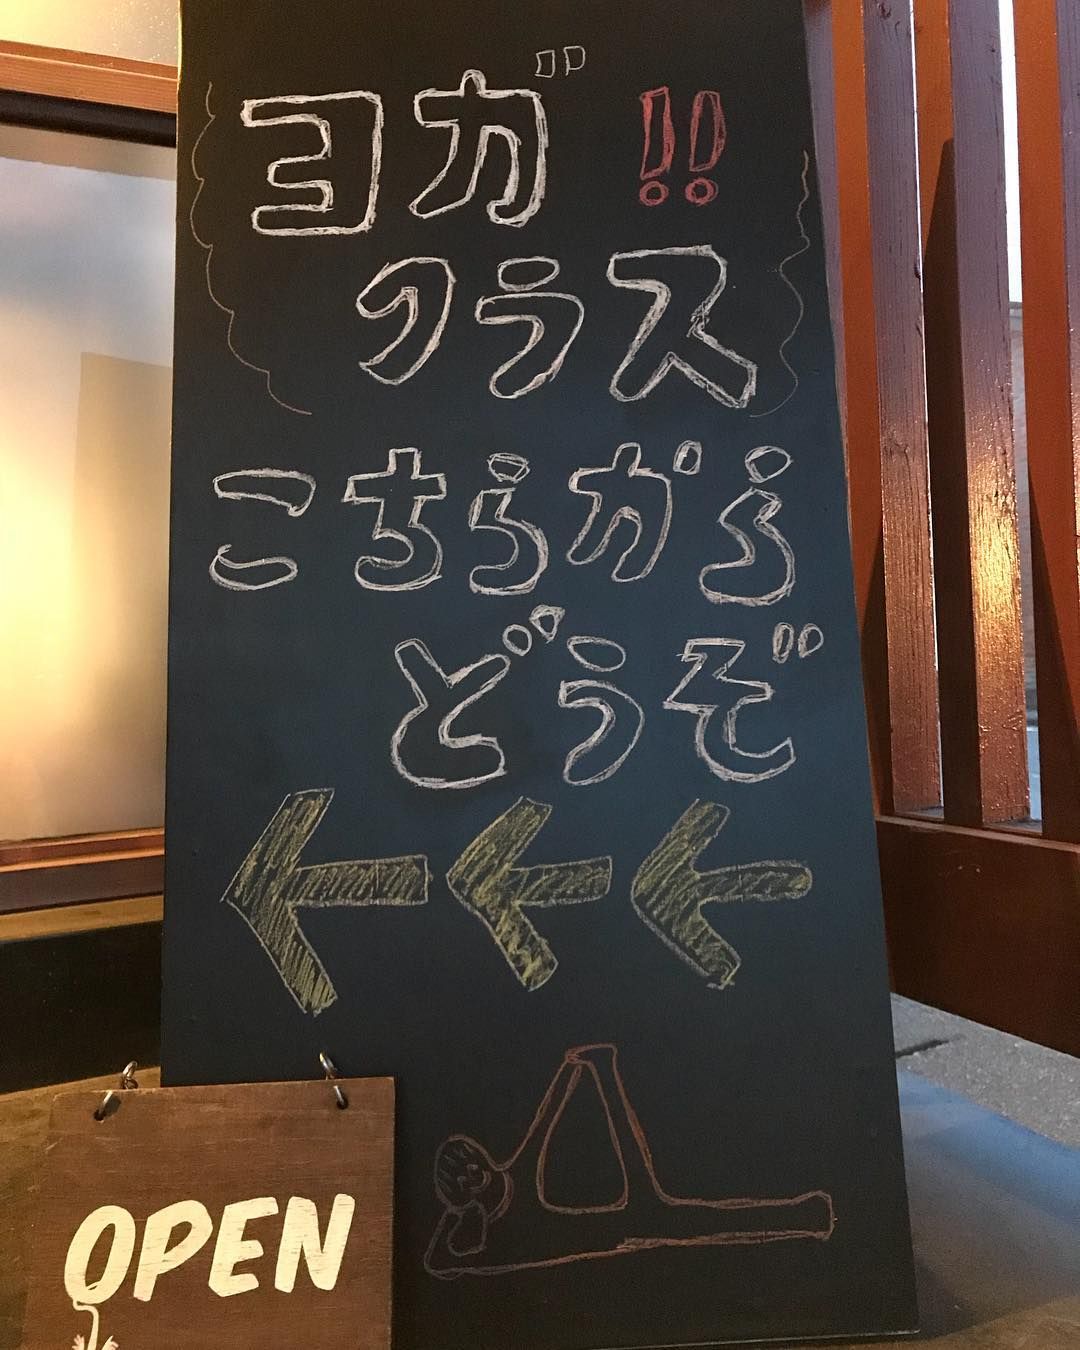 ヨガ!!
クラス
こちらから
どうぞ
OPEN